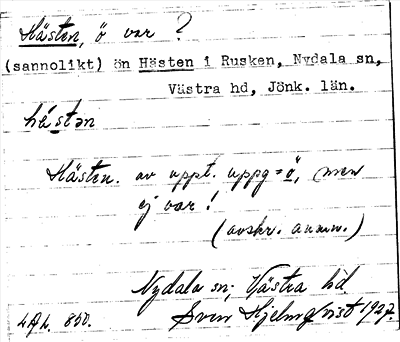 Hästen, ö var ?
(sannolikt) ön Hästen i Rusken, Nydala sn,
Västra hd, Jönk. län.
hästən
Hästen. av uppt. uppg = ö, men
ej var!
(avskr. anm.)
Nydala sn; Västra hd.
LAL. 850. Sven Hjelmqvist 1927.